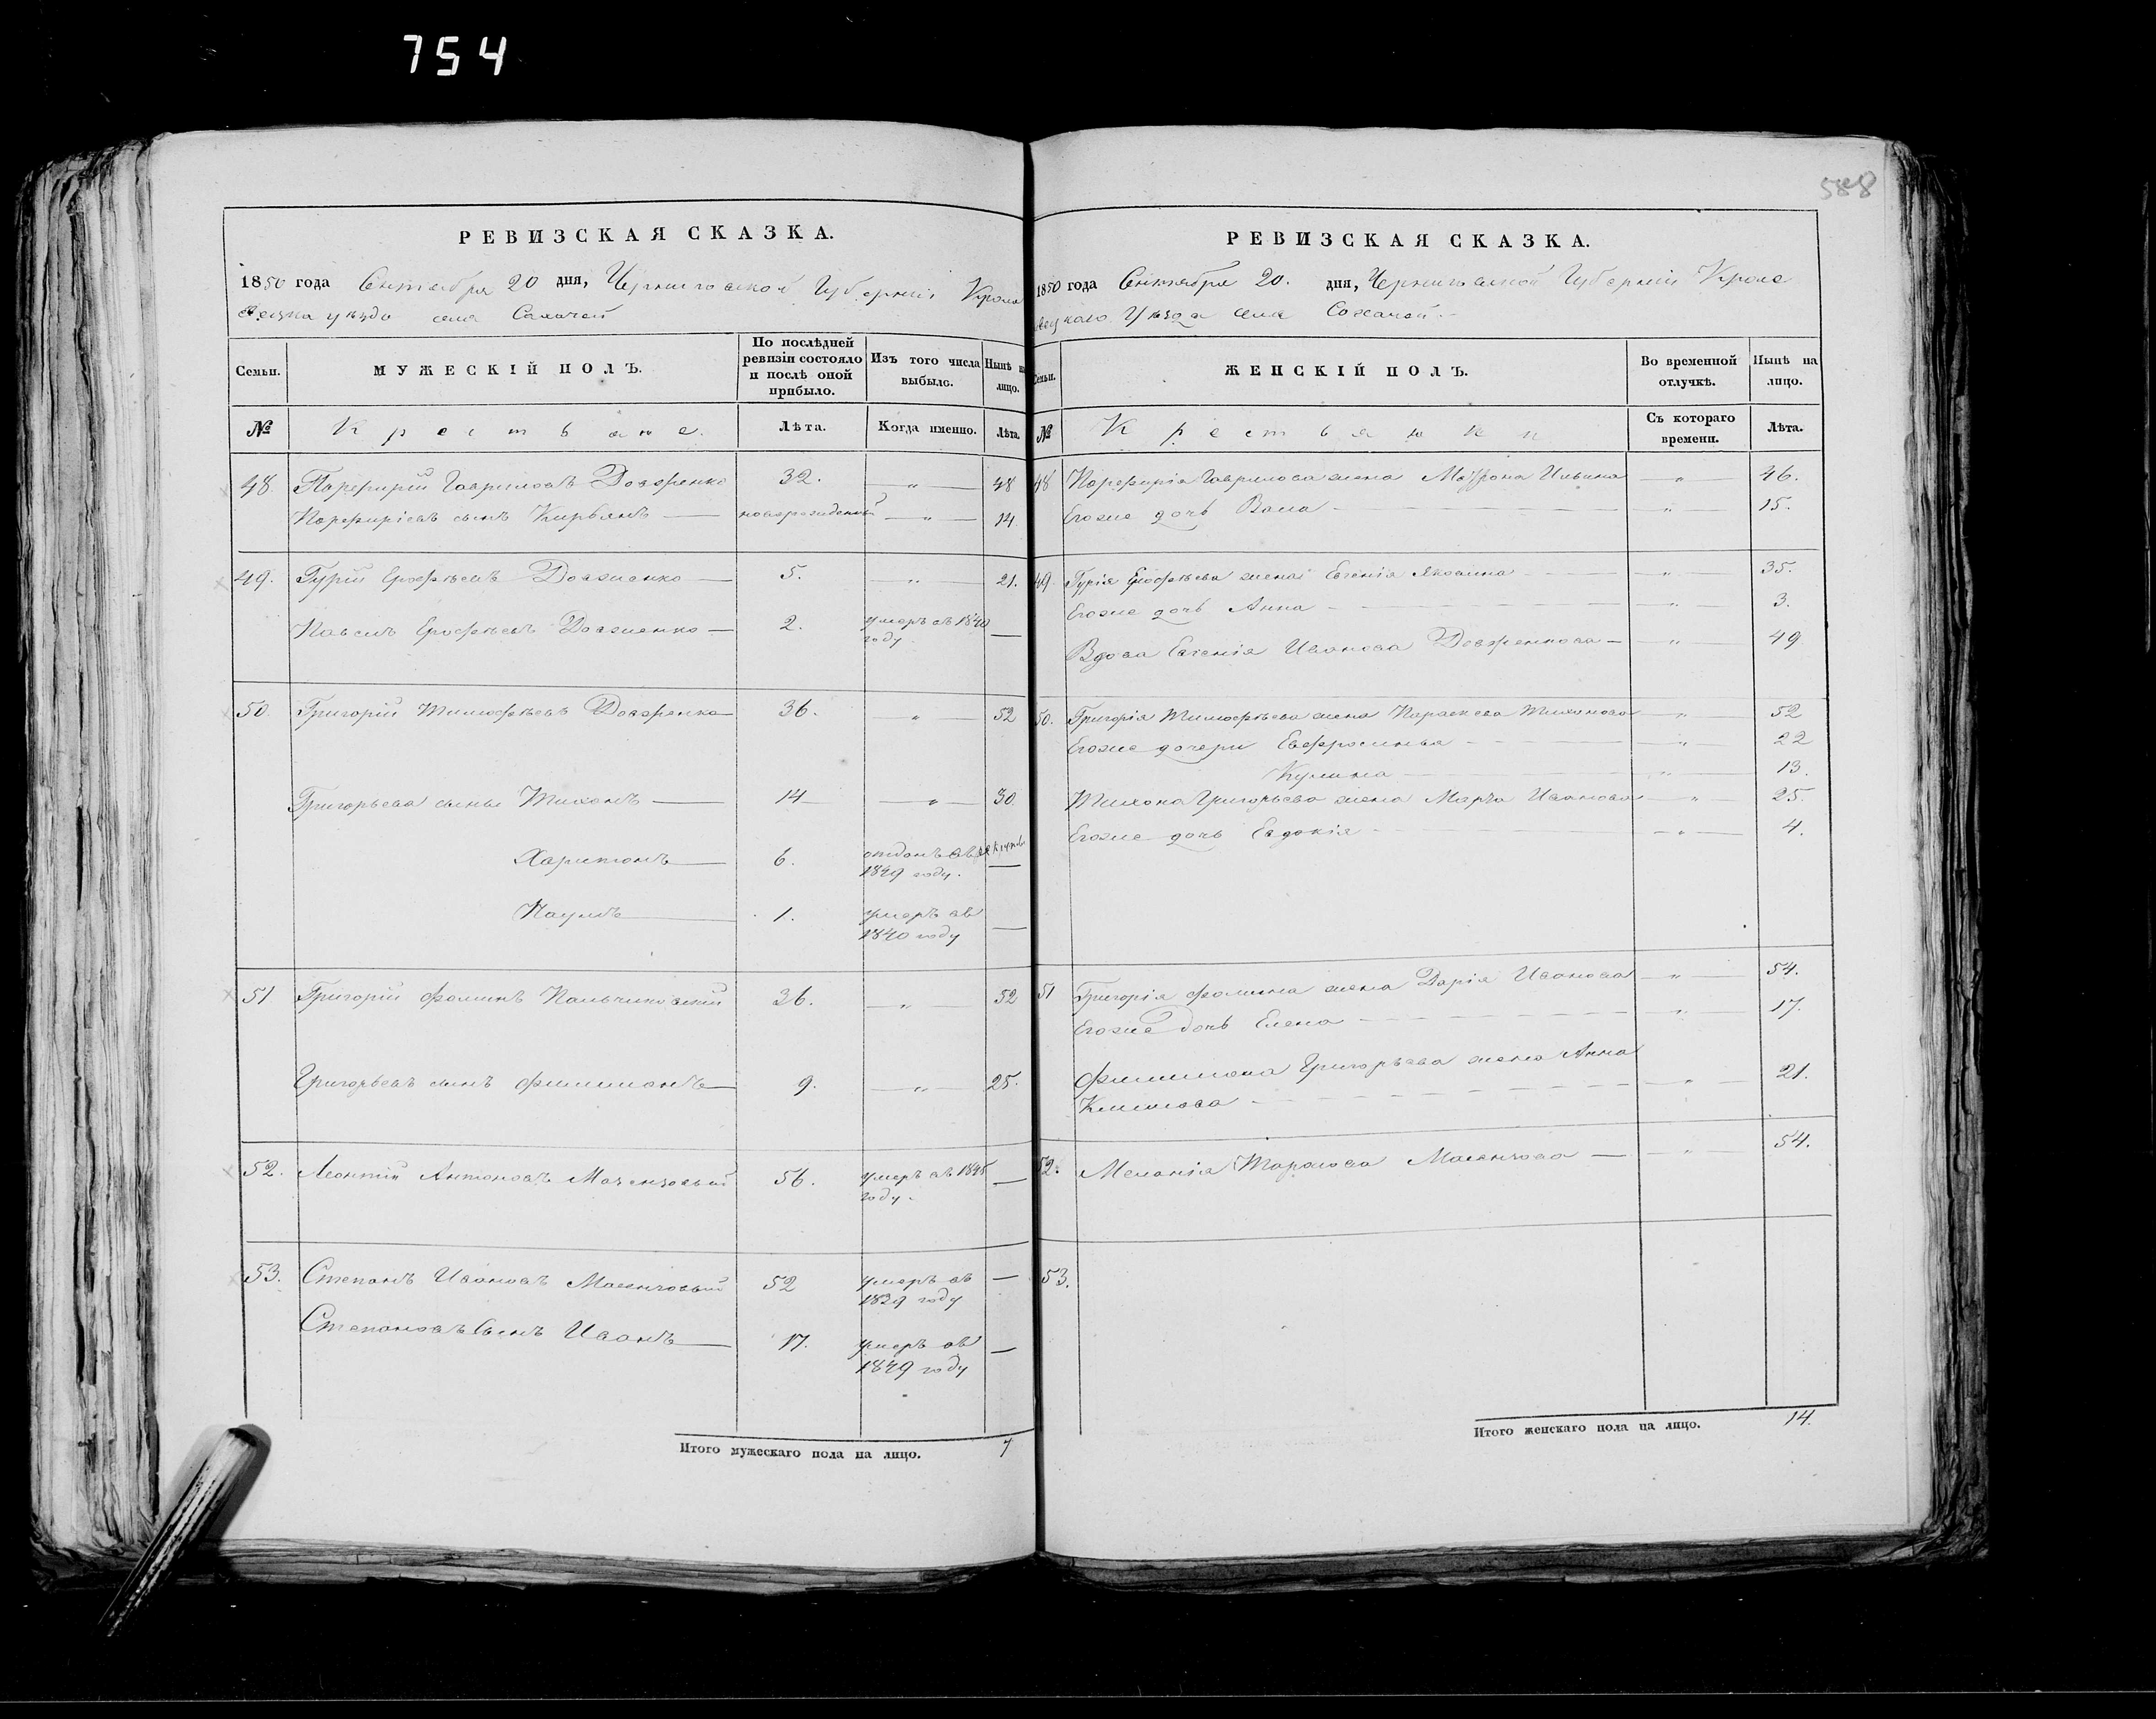 754
588
РЕВИЗСКАЯ СКАЗКА.
1850 года Сентября 20 дня, Черниговской Губерніи Кроле
вецкаго уезда села
Семьи.
МУЖЕСКІЙ ПОЛЪ.
По послѣдней ревизіи состояло и послѣ оной прибыло.
Изъ того числа выбыло.
Нынѣ на лицо.
№
Крестьяне.
Лѣта.
Когда именно.
Лѣта.
48 Порфирій Гавриловъ Довженко 32. " 48
Порфиріевъ сынъ Кирьянъ новорожденный " 14
49. Гурій Ерофѣевъ Довженко 5. " 21.
Ерофѣевъ Довженко 2. умеръ въ 1840
году
50. Григорій Тимофѣевъ Довженко 36. " 52
Григорьева сынья Тихонъ 14 " 30
Харитонъ 6. отданъ въ рекруты
1849 году.
Наумъ 1. умеръ въ
1840 году
51 Григорій Фоминъ 36. " 52
Григорьевъ сынъ Филимонъ 9. " 25.
52. Леонтій Антоновъ 56. умеръ въ 1845
году.
53. Степанъ Ивановъ 52 умеръ въ
1839 году
Степановъ Сынъ Иванъ 17. умеръ въ
1849 году
Итого мужескаго пола на лицо. 7
РЕВИЗСКАЯ СКАЗКА.
1850 года Сентября 20. дня, Черниговской Губерніи Кроле
вецкаго Уѣзда села
Семьи.
ЖЕНСКІЙ ПОЛЪ.
Во временной отлучкѣ.
Нынѣ на лицо.
№
Крестьянки
Съ котораго времени.
Лѣта.
48 Порфирія Гаврилова жена Мавфрона Ильина " 46.
Егоже дочь " 15.
49. Гурія Ерофѣева жена Евгенія Яковлина " 35.
Егоже дочь Анна " 3.
Вдова Евгенія Иванова Довженкова " 49
50. Григорія Тимофѣева жена Параскева Тихонова " 52
Егоже дочери Евфросинья " 22
Кулина " 13.
Тихона Григорьева жена Марфа Иванова " 25.
Егоже дочь Евдокія " 4.
51 Григорія Фомина жена Дарія Иванова " 54.
Егоже дочь Елена " 17.
Филимона Григорьева жена Анна
Климова " 21.
52. Меланія Тарасова " 54.
53.
Итого женскаго пола на лицо. 14.